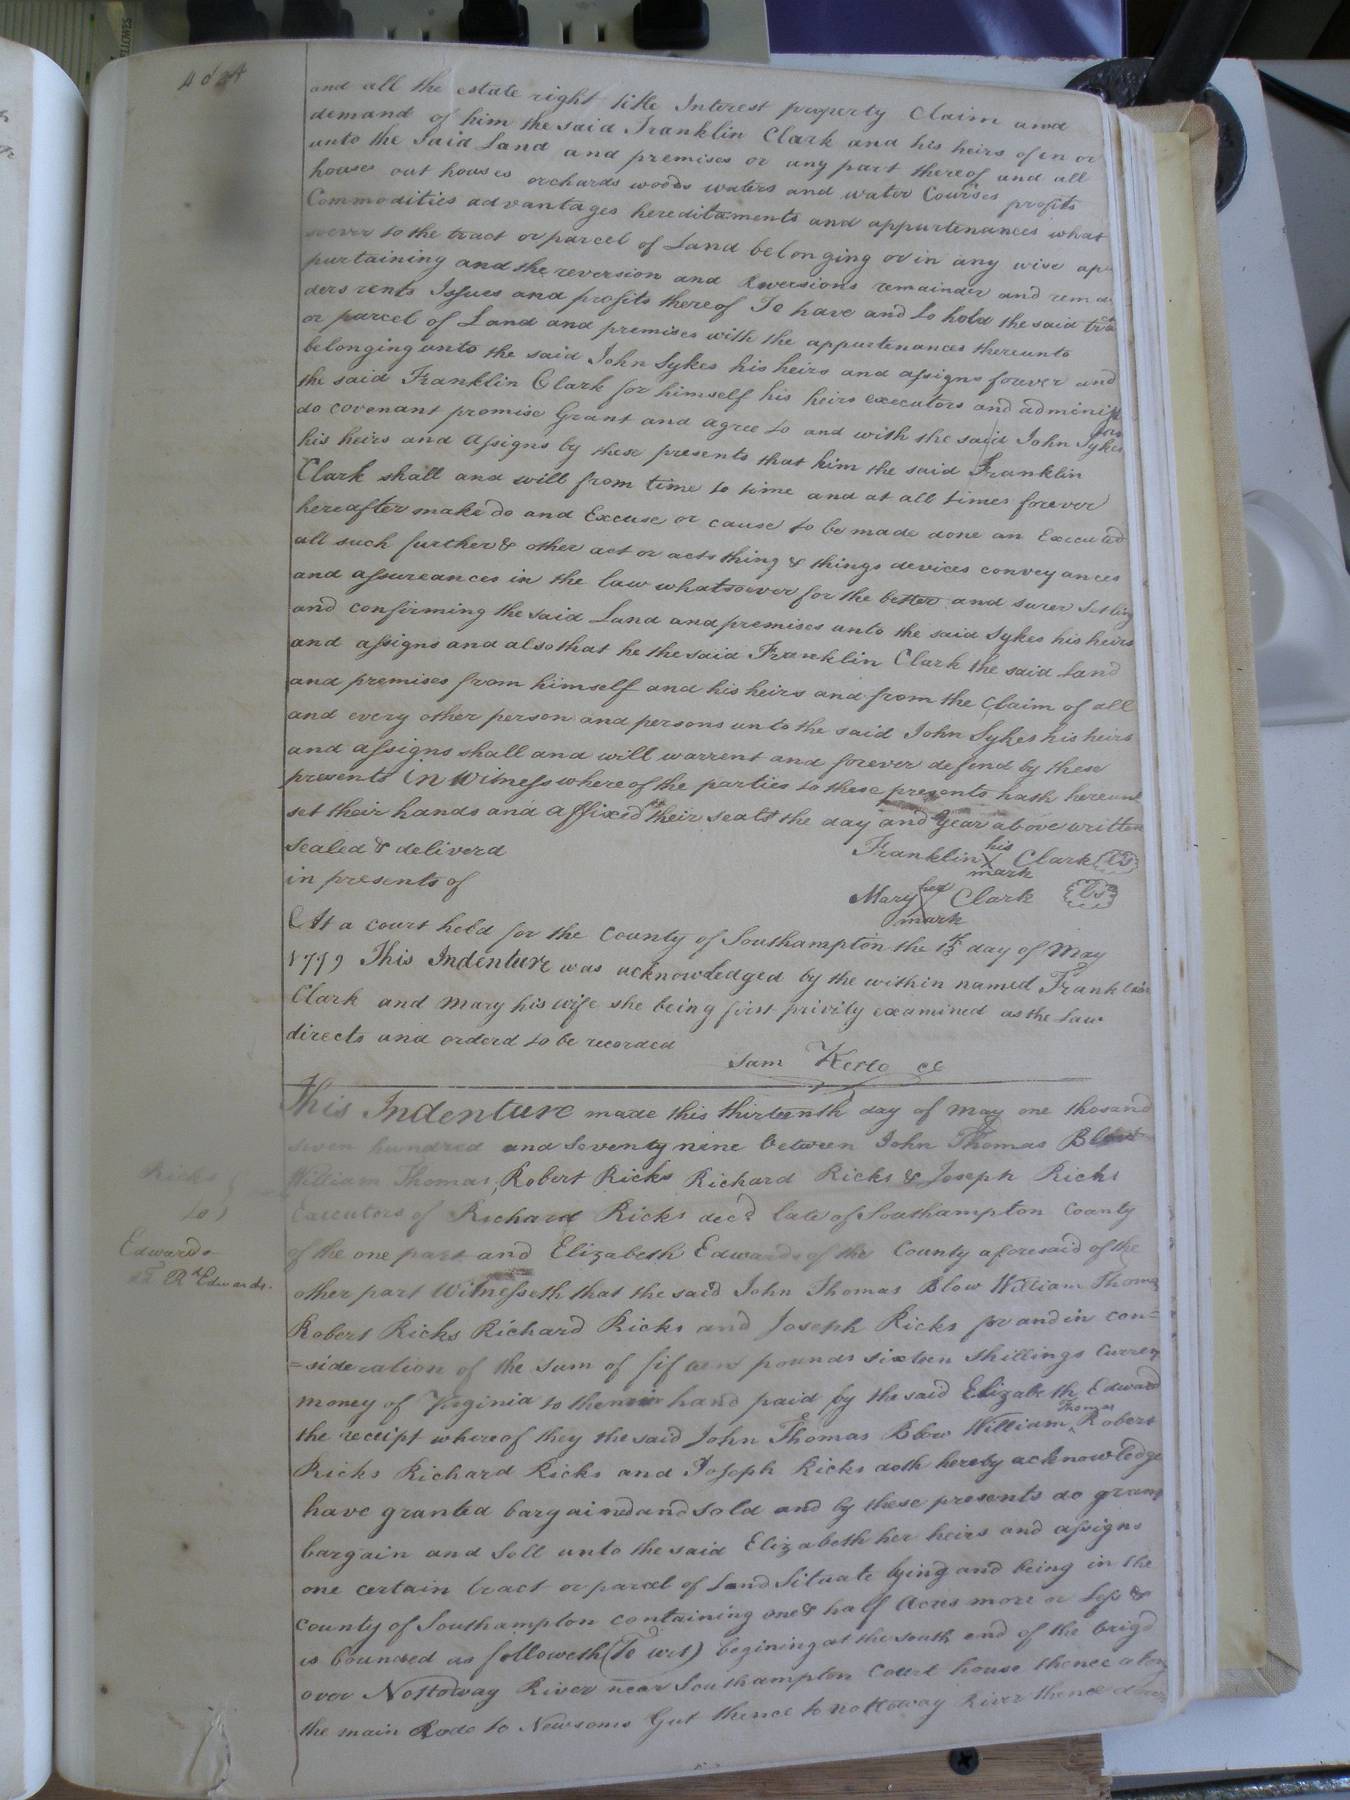 and all the estate right title Interest property Claim and
demand of him the said Franklin Clark and his heirs of in or
unto the said Land and premises or any part thereof and all
houses out houses orchards woods waters and water Courses profits
Commodities advantages hereditaments and appurtenances what
soever to the tract or parcel of Land belonging or in any wise ap
purtaining and the reversion and Reversions remainder and rema
ders rents Issues and profits thereof To have and to hold the said tract
or parcel of Land and premises with the appurtenances thereunto
belonging unto the said John Sykes his heirs and assigns forever and
the said Franklin Clark for himself his heirs executors and administ
do covenant promise Grant and agree to and with the said John Sykes
his heirs and Assigns by these presents that him the said Franklin
Clark shall and will from time to time and at all times forever
hereafter make do and Excuse or cause to be made done an Executed
all such further & other act or acts thing & things devices conveyances
and assureances in the law whatsoever for the better and surer Setling
and confirming the said Land and premises unto the said Sykes his heirs
and assigns and also that he the said Franklin Clark the said Land
and premises from himself and his heirs and from the Claim of all
and every other person and persons unto the said John Sykes his heirs
and assigns shall and will warrent and forever defend by these
presents In Witness whereof the parties to these presents hath hereunt
set their hands and affixed their seals the day and year above written
Sealed & deliverd
in presents of
Franklin his X mark Clark LS
Mary her X mark Clark LS
At a court held for the County of Southampton the 13th day of May
1779 This Indenture was acknowledged by the within named Franklin
Clark and Mary his wife she being first privily examined as the Law
directs and orderd to be recorded
Sam Kello CC
This Indenture made this thirteenth day of May one thosand
seven hundred and Seventy nine between John Thomas Blow
William Thomas, Robert Ricks Richard Ricks & Joseph Ricks
Executors of Richard Ricks decd late of Southampton County
of the one part and Elizabeth Edwards of the County aforesaid of the
other part Witnesseth that the said John Thomas Blow William Thomas
Robert Ricks Richard Ricks and Joseph Ricks for and in con=
=sideration of the sum of fifteen pounds sixteen shillings Curren
money of Virginia to them in hand paid by the said Elizabeth Edward
the receipt whereof they the said John Thomas Blow William Thomas Robert
Ricks Richard Ricks and Joseph Ricks doth hereby acknowledge
have granted bargained and sold and by these presents do grant
bargain and Sell unto the said Elizabeth her heirs and assigns
one certain tract or parcel of Land Situate lying and being in the
County of Southampton containing one & half Acres more or Less &
is bounded as followeth (To wit) begining at the south end of the brigd
over Nottoway River near Southampton Court house thence along
the main Rode to Newsoms Gut thence to nottoway River thence down
Ricks
to
Edwards
Rd Edwards.